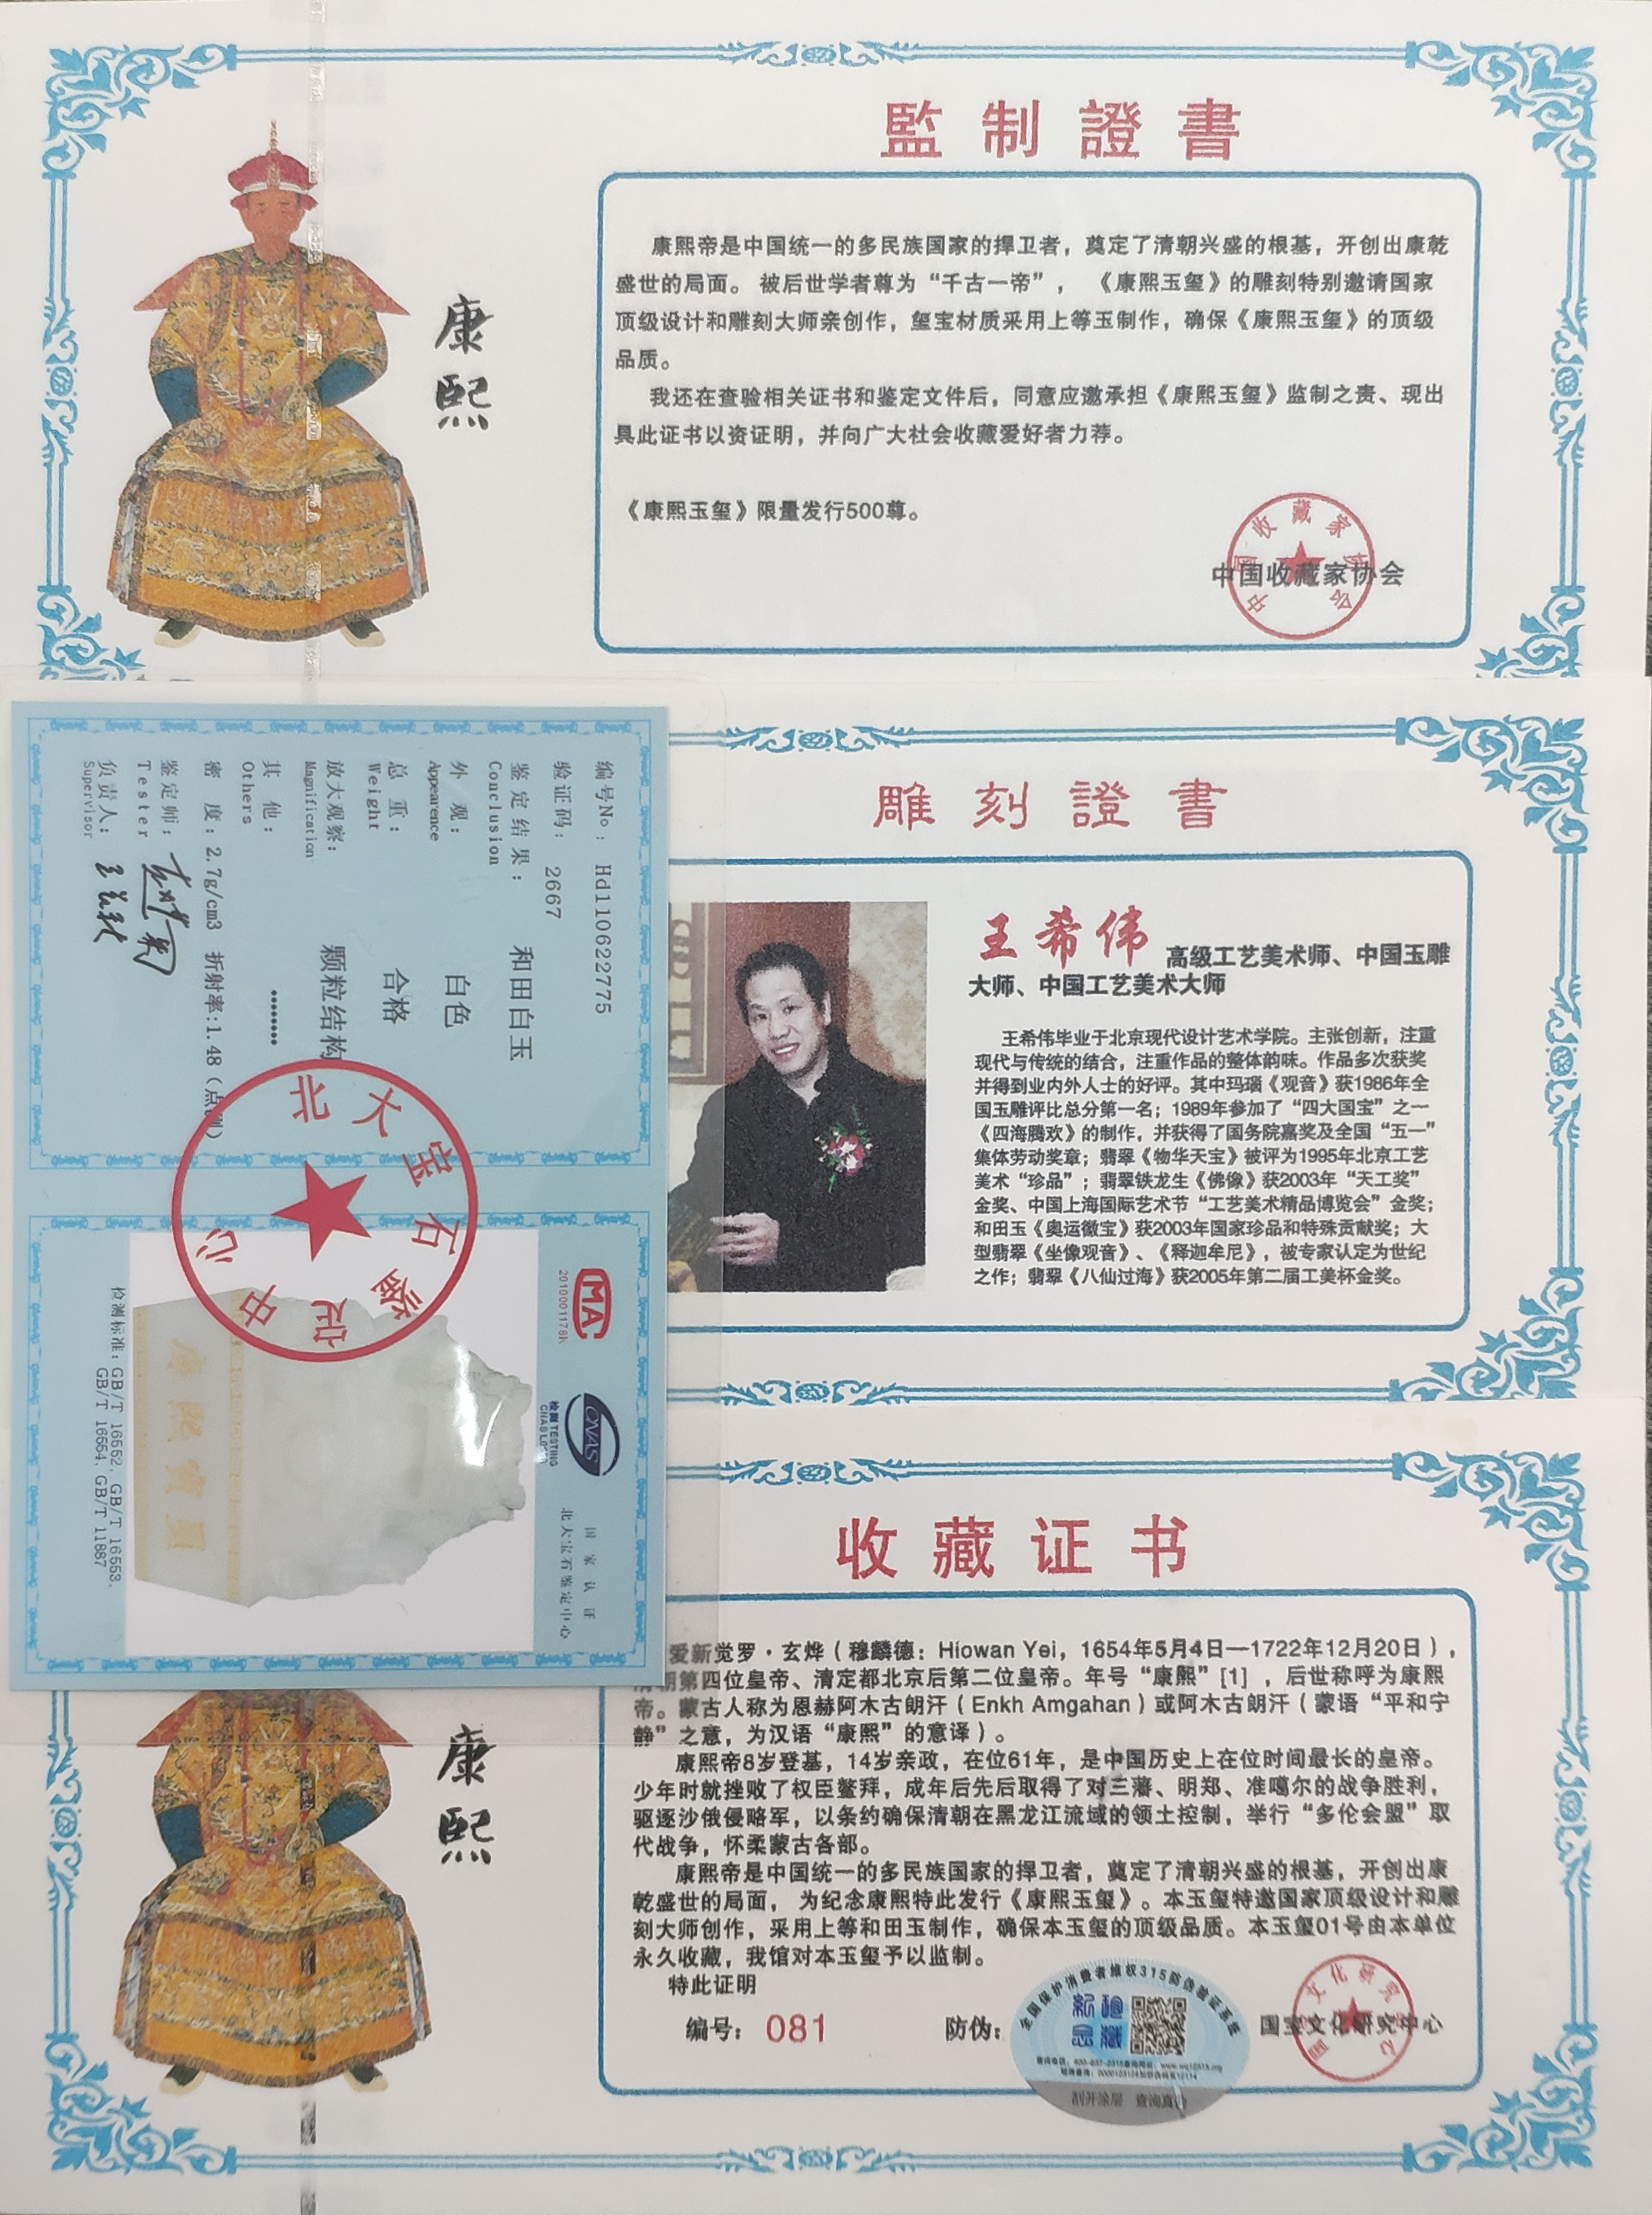 監制證書
康熙
康熙帝是中国统一的多民族国家的捍卫者，奠定了清朝兴盛的根基，开创出康乾
盛世的局面。被后世学者尊为“千古一帝”，《康熙玉玺》的雕刻特别邀请国家
顶级设计和雕刻大师亲创作，玺宝材质采用上等玉制作，确保《康熙玉玺》的顶级
品质。
我还在查验相关证书和鉴定文件后，同意应邀承担《康熙玉玺》监制之责、现出
具此证书以资证明，并向广大社会收藏爱好者力荐。
《康熙玉玺》限量发行500尊。
中国收藏家协会
中国收藏家协会
编号No： Hd110622775
验证码： 2667
鉴定结果： 和田白玉
Conclusion
外 观： 白色
Appearence
总 重： 合格
Weight
放大观察： 颗粒结构
Magnification
其 他： ………
Others
密 度：2.7g/cm3 折射率:1.48（点测）
鉴定师：
Tester
负责人：
Supervisor
北大宝石鉴定中心
MA
CNAS
检测 TESTING
国家认证
北大宝石鉴定中心
康熙宝玺
检测标准：GB/T 16552、GB/T 16553、
GB/T 16554、GB/T 11887
雕刻證書
王希伟 高级工艺美术师、中国玉雕
大师、中国工艺美术大师
王希伟毕业于北京现代设计艺术学院。主张创新，注重
现代与传统的结合，注重作品的整体韵味。作品多次获奖
并得到业内外人士的好评。其中玛瑙《观音》获1986年全
国玉雕评比总分第一名；1989年参加了“四大国宝”之一
《四海腾欢》的制作，并获得了国务院嘉奖及全国“五一”
集体劳动奖章；翡翠《物华天宝》被评为1995年北京工艺
美术“珍品”；翡翠铁龙生《佛像》获2003年“天工奖”
金奖、中国上海国际艺术节“工艺美术精品博览会”金奖；
和田玉《奥运徽宝》获2003年国家珍品和特殊贡献奖；大
型翡翠《坐像观音》、《释迦牟尼》，被专家认定为世纪
之作；翡翠《八仙过海》获2005年第二届工美杯金奖。
收藏证书
康熙
爱新觉罗·玄烨（穆麟德：Hiowan Yei，1654年5月4日—1722年12月20日），
清朝第四位皇帝、清定都北京后第二位皇帝。年号“康熙”[1]，后世称呼为康熙
帝。蒙古人称为恩赫阿木古朗汗（Enkh Amgahan）或阿木古朗汗（蒙语“平和宁
静”之意，为汉语“康熙”的意译）。
康熙帝8岁登基，14岁亲政，在位61年，是中国历史上在位时间最长的皇帝。
少年时就挫败了权臣鳌拜，成年后先后取得了对三藩、明郑、准噶尔的战争胜利，
驱逐沙俄侵略军，以条约确保清朝在黑龙江流域的领土控制，举行“多伦会盟”取
代战争，怀柔蒙古各部。
康熙帝是中国统一的多民族国家的捍卫者，奠定了清朝兴盛的根基，开创出康
乾盛世的局面，为纪念康熙特此发行《康熙玉玺》。本玉玺特邀国家顶级设计和雕
刻大师创作，采用上等和田玉制作，确保本玉玺的顶级品质。本玉玺01号由本单位
永久收藏，我馆对本玉玺予以监制。
特此证明
编号：081
防伪：
全国保护消费者维权315防伪验证系统
刮开涂层 查询真伪
国宝文化研究中心